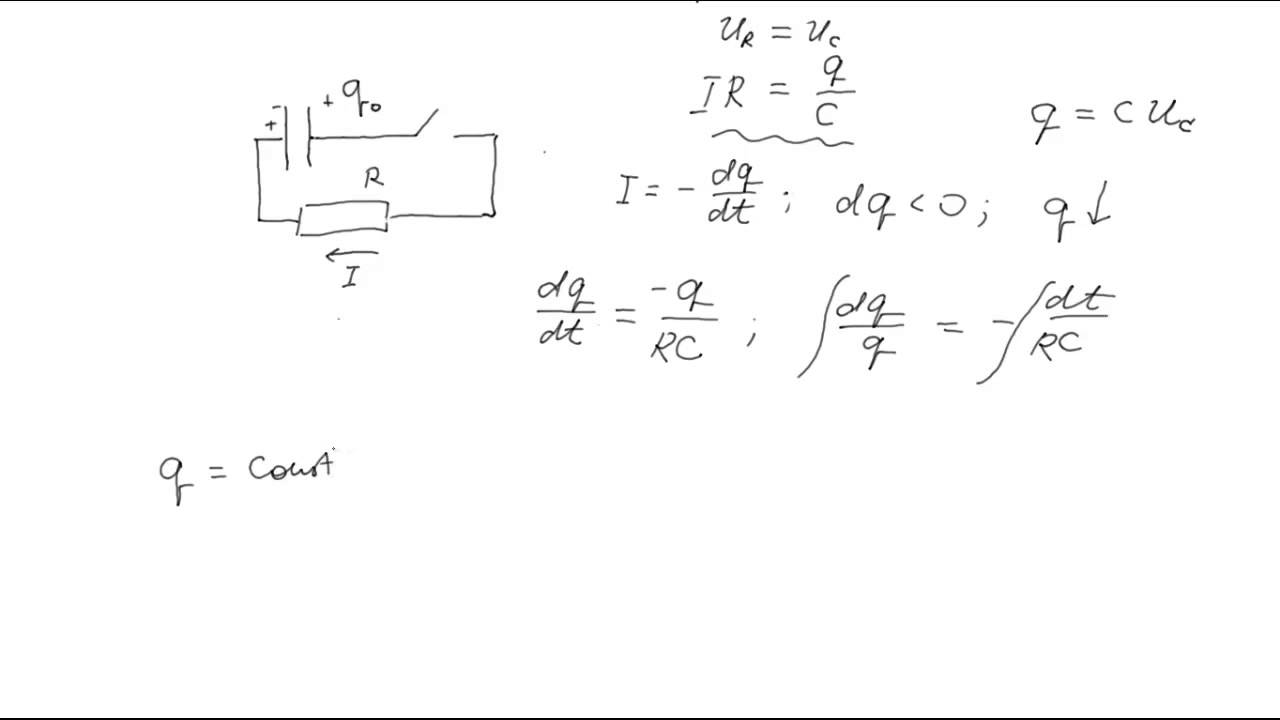 U_R = U_C
+ - + q_0
IR = q/C
q = C U_C
R
I = - dq/dt ; dq < 0 ; q ↓
I
dq/dt = -q/RC ; ∫ dq/q = - ∫ dt/RC
q = const